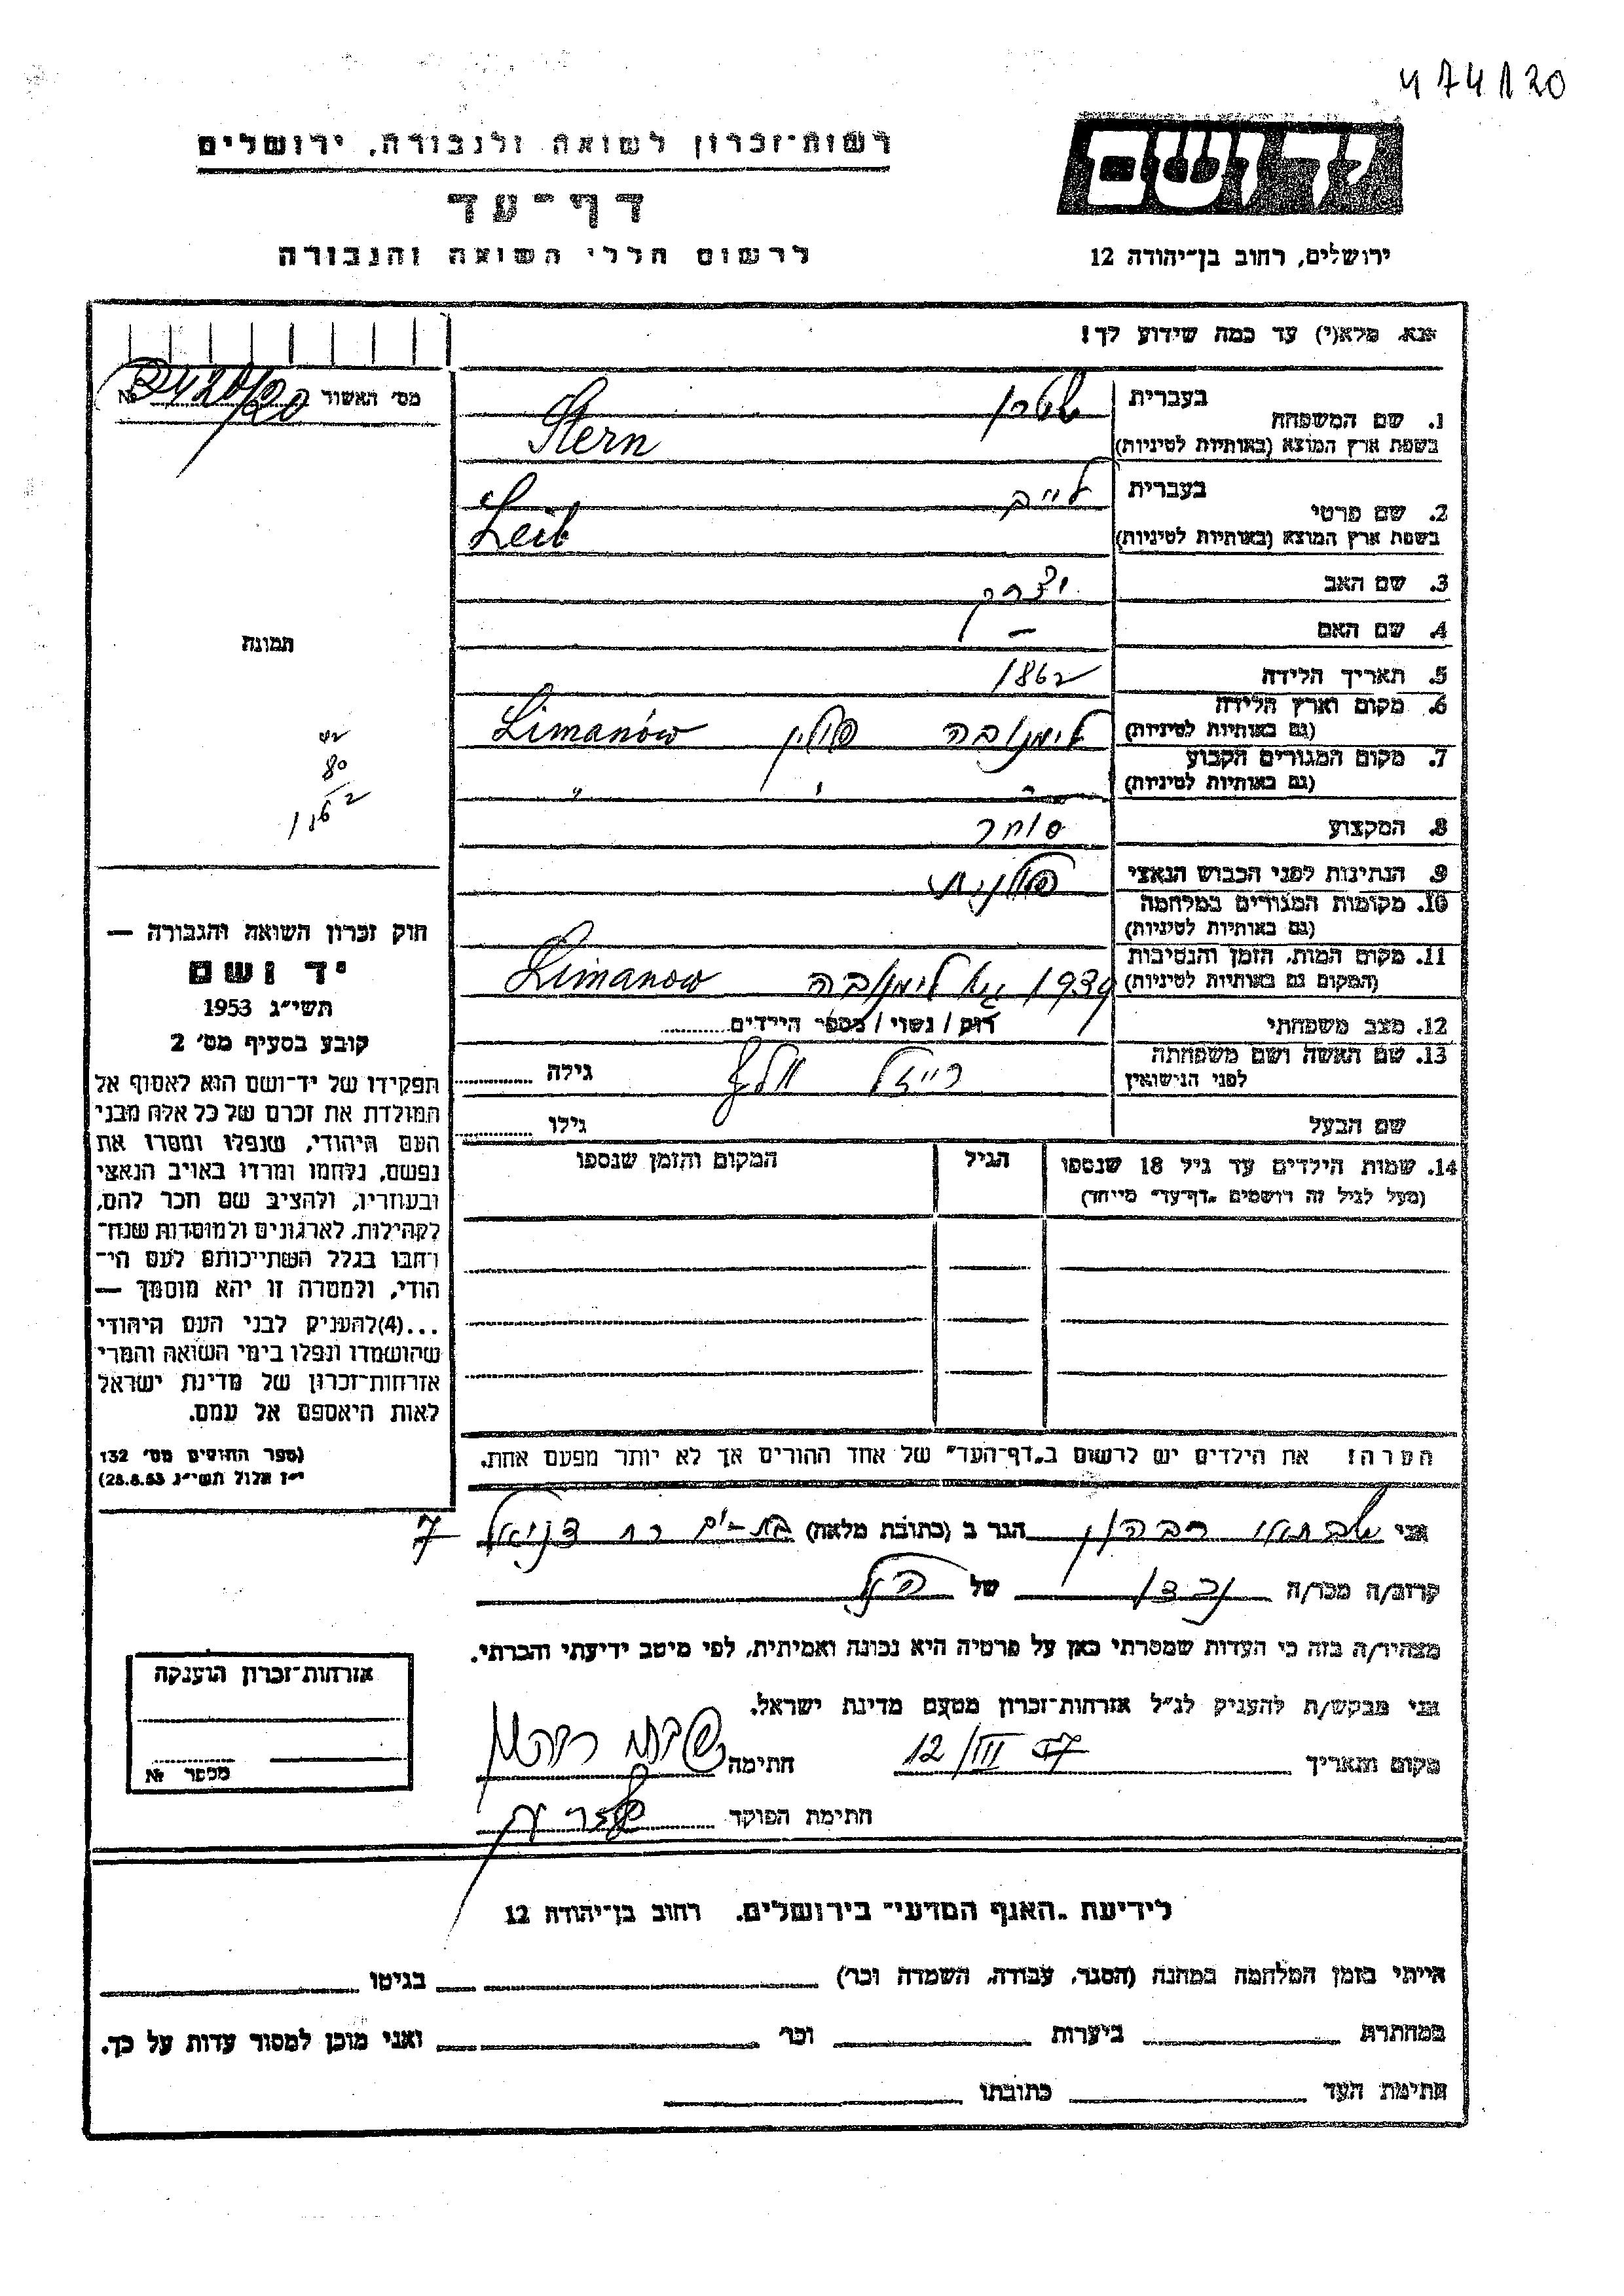 474120
רשות־זכרון לשואה ולגבורה, ירושלים
יד ושם
דף־עד
לרשום חללי השואה והגבורה
ירושלים, רחוב בן־יהודה 12
אנא, מלא(י) עד כמה שידוע לך!
מס' האשור №
1. שם המשפחה בעברית שטרן
בשפת ארץ המוצא (באותיות לטיניות) Stern
2. שם פרטי בעברית לייב
בשפת ארץ המוצא (באותיות לטיניות) Leib
3. שם האב יצחק
4. שם האם —
5. תאריך הלידה 1862
6. מקום וארץ הלידה (גם באותיות לטיניות) לימנובה פולין Limanów
7. מקום המגורים הקבוע (גם באותיות לטיניות) " " "
8. המקצוע סוחר
9. הנתינות לפני הכבוש הנאצי פולנית
10. מקומות המגורים במלחמה (גם באותיות לטיניות)
11. מקום המות, הזמן והנסיבות (המקום גם באותיות לטיניות) 1939 לימנובה Limanow
12. מצב משפחתי רוק / נשוי / מספר הילדים
13. שם האשה ושם משפחתה לפני הנישואין רייזל גילה
שם הבעל גילו
14. שמות הילדים עד גיל 18 שנספו הגיל המקום והזמן שנספו
(מעל לגיל זה רושמים "דף־עד" מיוחד)
הערה: את הילדים יש לרשום ב"דף־העד" של אחד ההורים אך לא יותר מפעם אחת.
תמונה
80
1862
חוק זכרון השואה והגבורה —
יד ושם
תשי"ג 1953
קובע בסעיף מס' 2
תפקידו של יד־ושם הוא לאסוף אל
המולדת את זכרם של כל אלה מבני
העם היהודי, שנפלו ומסרו את
נפשם, נלחמו ומרדו באויב הנאצי
ובעוזריו, ולהציב שם וזכר להם,
לקהילות, לארגונים ולמוסדות שנח־
רבו בגלל השתייכותם לעם הי־
הודי, ולמטרה זו יהא מוסמך —
...(4)להעניק לבני העם היהודי
שהושמדו ונפלו בימי השואה והמרי
אזרחות־זכרון של מדינת ישראל
לאות היאספם אל עמם.
(ספר החוקים מס' 132
י"ז אלול תשי"ג 28.8.53)
אני שבתאי הגר ב (כתובת מלאה) בת-ים רח דניאל 7
קרוב/ה מכר/ה נכדו של הנ"ל
מצהיר/ה בזה כי העדות שמסרתי כאן על פרטיה היא נכונה ואמיתית, לפי מיטב ידיעתי והכרתי.
אני מבקש/ת להעניק לנ"ל אזרחות־זכרון מטעם מדינת ישראל.
מקום ותאריך 12/III 57 חתימה
חתימת הפוקד
אזרחות־זכרון הוענקה
מספר №
לידיעת "האגף המדעי" בירושלים, רחוב בן־יהודה 12
הייתי בזמן המלחמה במחנה (הסגר, עבודה, השמדה וכו') בגיטו
במחתרת ביערות וכו' ואני מוכן למסור עדות על כך.
חתימת העד כתובתו